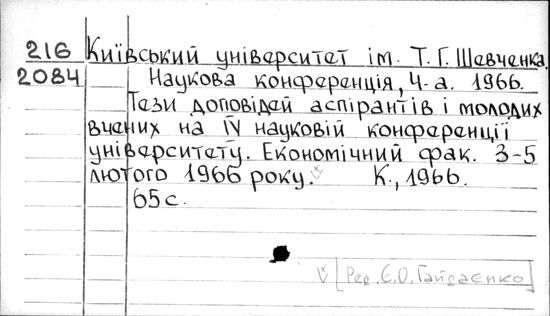 216 Київський університет ім. Т.Г. Шевченка.
2084 Наукова конференція, 4-а. 1966.
Тези доповідей аспірантів і молодих
вчених на IV науковій конференції
університету. Економічний фак. 3-5
лютого 1966 року. К., 1966.
65 с.
[Ред. Є.О. Гайдаєнко]